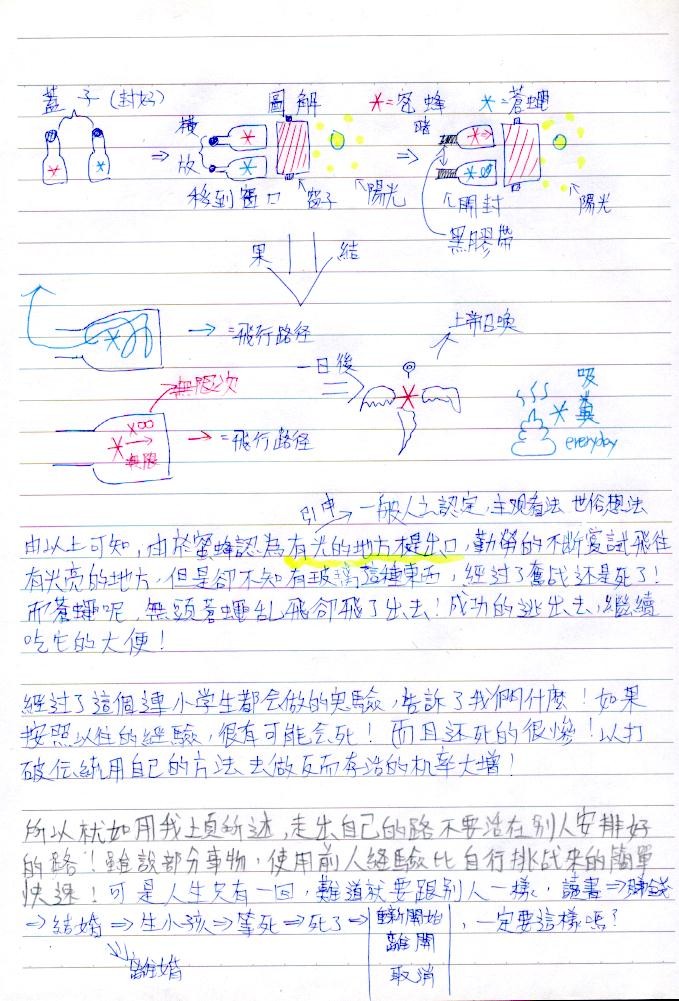 蓋子(封好)
圖解
*=蜜蜂
*=蒼蠅
橫放
移到窗口
窗子
陽光
暗
開封
黑膠帶
陽光
結果
=飛行路徑
無限次
x∞
無限
=飛行路徑
一日後
上帝召喚
吸糞
everyday
引申 一般人士認定,主观看法 世俗想法
由以上可知,由於蜜蜂認為有光的地方才是出口,勤勞的不斷嘗試飛往
有光亮的地方,但是卻不知有玻璃這種東西,經过了奮战还是死了!
而蒼蠅呢,無頭蒼蠅乱飛卻飛了出去!成功的逃出去,繼續
吃它的大便!
經过了這個連小学生都会做的实驗,告訴了我們什麼!如果
按照以往的經驗,很有可能会死!而且还死的很慘!以打
破伝統用自己的方法去做反而存活的机率大增!
所以就如用我上頁所述,走出自己的路不要活在別人安排好
的路!雖說部分事物,使用前人經驗比自行挑战來的簡單
快速!可是人生只有一回,難道就要跟別人一樣,讀書⇒賺錢
⇒結婚⇒生小孩⇒等死⇒死了⇒ 重新開始 ,一定要這樣嗎?
離開
離婚
取消